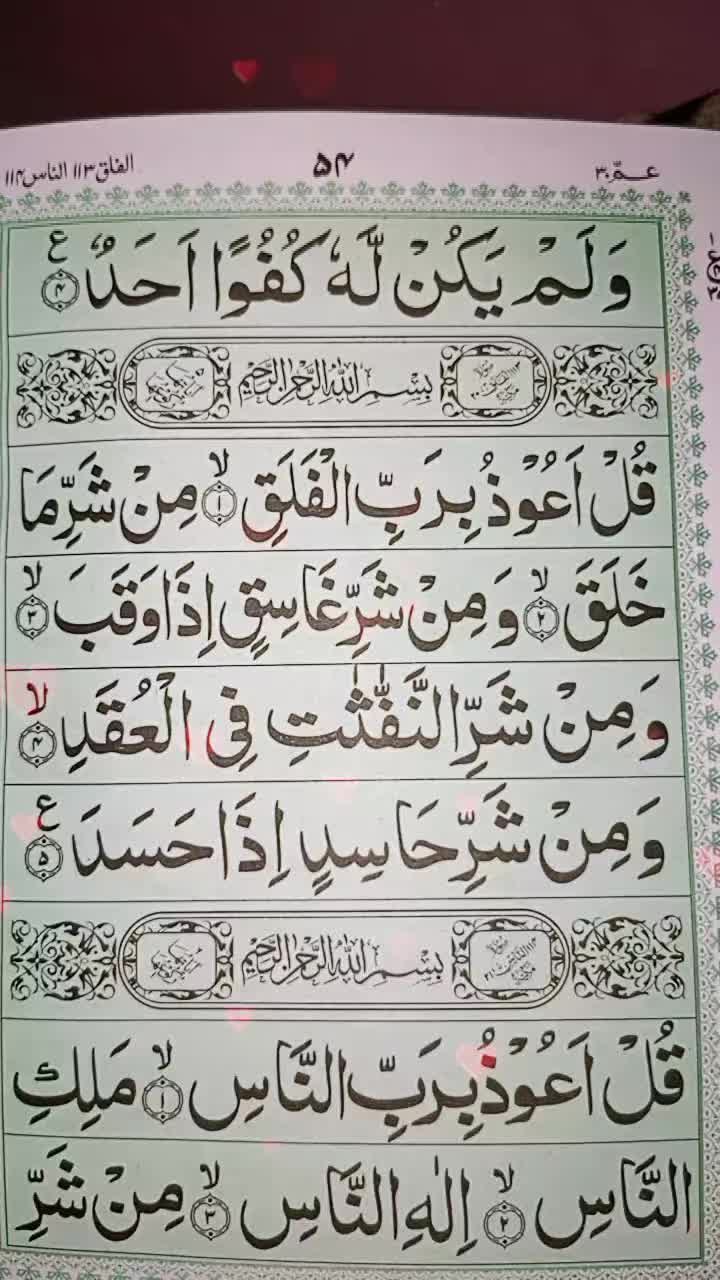 عـمّ ٣٠ ۵۴ الفلق ١١٣ الناس ١١۴
وَلَمْ يَكُنْ لَّهٗ كُفُوًا اَحَدٌ ۴ ع
بِسْمِ اللّٰهِ الرَّحْمٰنِ الرَّحِيْمِ
قُلْ اَعُوْذُ بِرَبِّ الْفَلَقِ ١ لا مِنْ شَرِّ مَا
خَلَقَ ٢ لا وَمِنْ شَرِّ غَاسِقٍ اِذَا وَقَبَ ٣ لا
وَمِنْ شَرِّ النَّفّٰثٰتِ فِى الْعُقَدِ ۴ لا
وَمِنْ شَرِّ حَاسِدٍ اِذَا حَسَدَ ۵ ع
بِسْمِ اللّٰهِ الرَّحْمٰنِ الرَّحِيْمِ
قُلْ اَعُوْذُ بِرَبِّ النَّاسِ ١ لا مَلِكِ
النَّاسِ ٢ لا اِلٰهِ النَّاسِ ٣ لا مِنْ شَرِّ